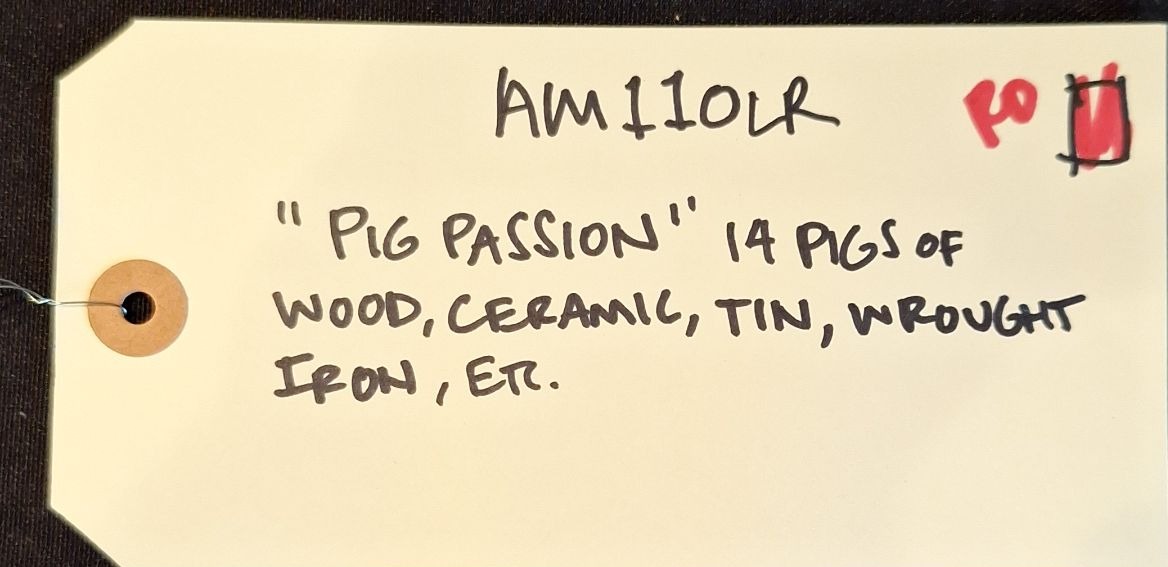 AM110LR
RO
"PIG PASSION" 14 PIGS OF
WOOD, CERAMIC, TIN, WROUGHT
IRON, ETC.